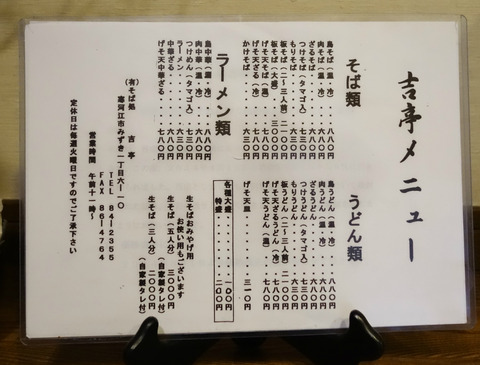 吉亭メニュー
そば類
鳥そば（温・冷）・・八八〇円
肉そば（温・冷）・・八八〇円
ざるそば・・・・・・六三〇円
つけそば（タマゴ入）・七三〇円
もりそば・・・・・・六三〇円
板そば（二〜三人前）二一〇〇円
板そば（大盛）・・三〇〇〇円
げそ天そば（温）・・七八〇円
げそ天ざる（冷）・・七八〇円
かけそば・・・・・・六三〇円
うどん類
鳥うどん（温・冷）・・八八〇円
肉うどん（温・冷）・・八八〇円
ざるうどん・・・・・六三〇円
つけうどん（タマゴ入）・七三〇円
もりうどん・・・・・六三〇円
板うどん（二〜三人前）二一〇〇円
げそ天ざるうどん（冷）・七八〇円
げそ天うどん（温）・・七八〇円
げそ天・・・・・・三一〇円
ラーメン類
鳥中華（温・冷）・・八八〇円
肉中華（温・冷）・・八八〇円
つけめん（タマゴ入）・七三〇円
ラーメン・・・・・・六三〇円
中華ざる・・・・・・六三〇円
げそ天中華ざる・・・七八〇円
各種大盛・・・・・一〇〇円
特盛・・・・・二〇〇円
生そばおみやげ用
お使い用もございます
生そば（五人分）　三〇〇〇円
（自家製タレ付）
生そば（三人分）　二〇〇〇円
（自家製タレ付）
（有）そば処　吉亭
寒河江市みずき一丁目六ー一〇
ＴＥＬ　８４ー２３５５
ＦＡＸ　８６ー４７６４
営業時間　午前十一時〜
定休日は毎週火曜日ですのでご了承下さい